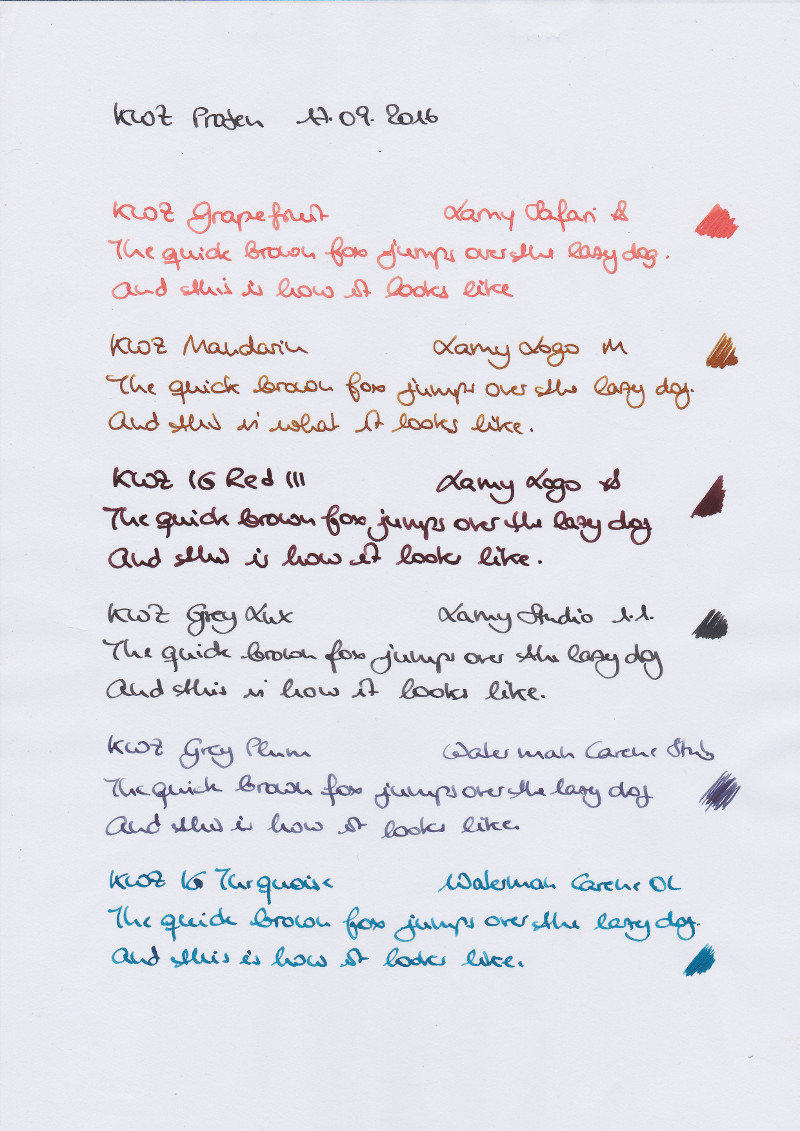 KWZ Proben 17.09.2016
KWZ Grapefruit Lamy Safari
The quick brown fox jumps over the lazy dog.
And this is how it looks like
KWZ Mandarin Lamy Logo M
The quick brown fox jumps over the lazy dog.
And this is what it looks like.
KWZ IG Red III Lamy Logo
The quick brown fox jumps over the lazy dog
And this is how it looks like.
KWZ Grey Lux Lamy Studio 1.1.
The quick brown fox jumps over the lazy dog
And this is how it looks like.
KWZ Grey Plum Waterman Carene Stub
The quick brown fox jumps over the lazy dog
And this is how it looks like.
KWZ IG Turquoise Waterman Carene OL
The quick brown fox jumps over the lazy dog.
And this is how it looks like.